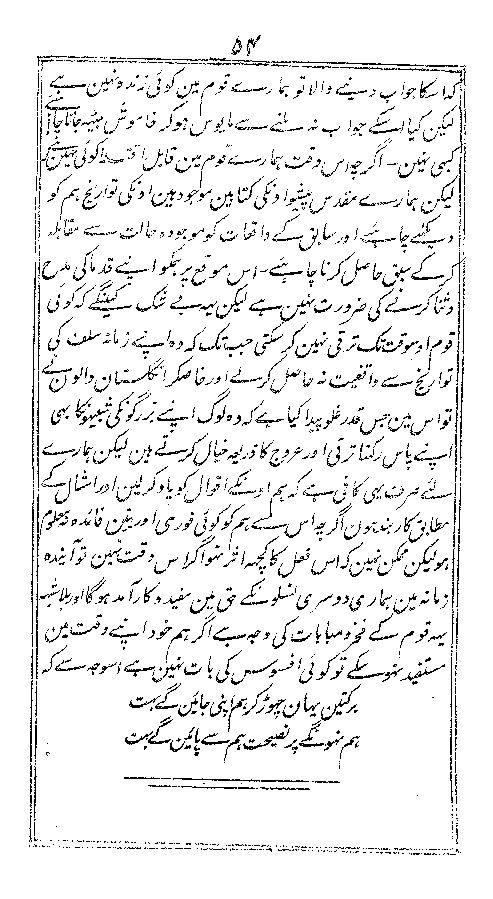 ۵۴
کہ اسکا جواب دینے والا تو ہمارے قوم مین کوئی زندہ نہین ہے
لیکن کیا اسکے جواب نہ ملنے سے مایوس ہوکر خاموش بیٹھ جانا چاہئے
کبھی نہین۔ اگرچہ اس وقت ہمارے قوم مین قابل کوئی نہین ہے
لیکن ہمارے مقدس پیشواونکی کتابین موجود ہین اونکی تواریخ ہم کو
دیکھنے چاہئے اور سابق کے واقعات کو موجودہ حالت سے مقابلہ
کرکے سبق حاصل کرنا چاہئے۔ اس موقع پر ہمکو اپنے قدما کی مدح
و ثنا کرنے کی ضرورت نہین ہے لیکن یہہ بے شک کہینگے کہ کوئی
قوم اوسوقت تک ترقی نہین کرسکتی جب تک کہ وہ اپنے زمانہ سلف کی
تواریخ سے واقفیت نہ حاصل کرلے اور خاصکر انگلستان والون نے
تو اس مین جس قدر غلو پیدا کیا ہے کہ وہ لوگ اپنے بزرگونکی شبیہونکا بھی
اپنے پاس رکھنا ترقی اور عروج کا ذریعہ خیال کرتے ہین لیکن ہمارے
لئے صرف یہی کافی ہے کہ ہم اونکے اقوال کو یاد کرلین اور امثال کے
مطابق کاربند ہون اگرچہ اس سے ہم کو کوئی فوری اور بین فائدہ نہ معلوم
ہو لیکن ممکن نہین کہ اس فعل کا کچھہ اثر نہو اگر اس وقت نہین تو آیندہ
زمانہ مین ہماری دوسری نسلونکے حق مین مفید و کارآمد ہوگا اور بلاشبہ
یہہ قوم کے فخر و مباہات کی وجہ ہے اگر ہم خود اپنے وقت مین
مستفید نہوسکے تو کوئی افسوس کی بات نہین ہے اسوجہ سے کہ
برکتین یہان چھوڑکر ہم اپنی جائین گے بہت
ہم نہونگے پر نصیحت ہم سے پائین گے بہت